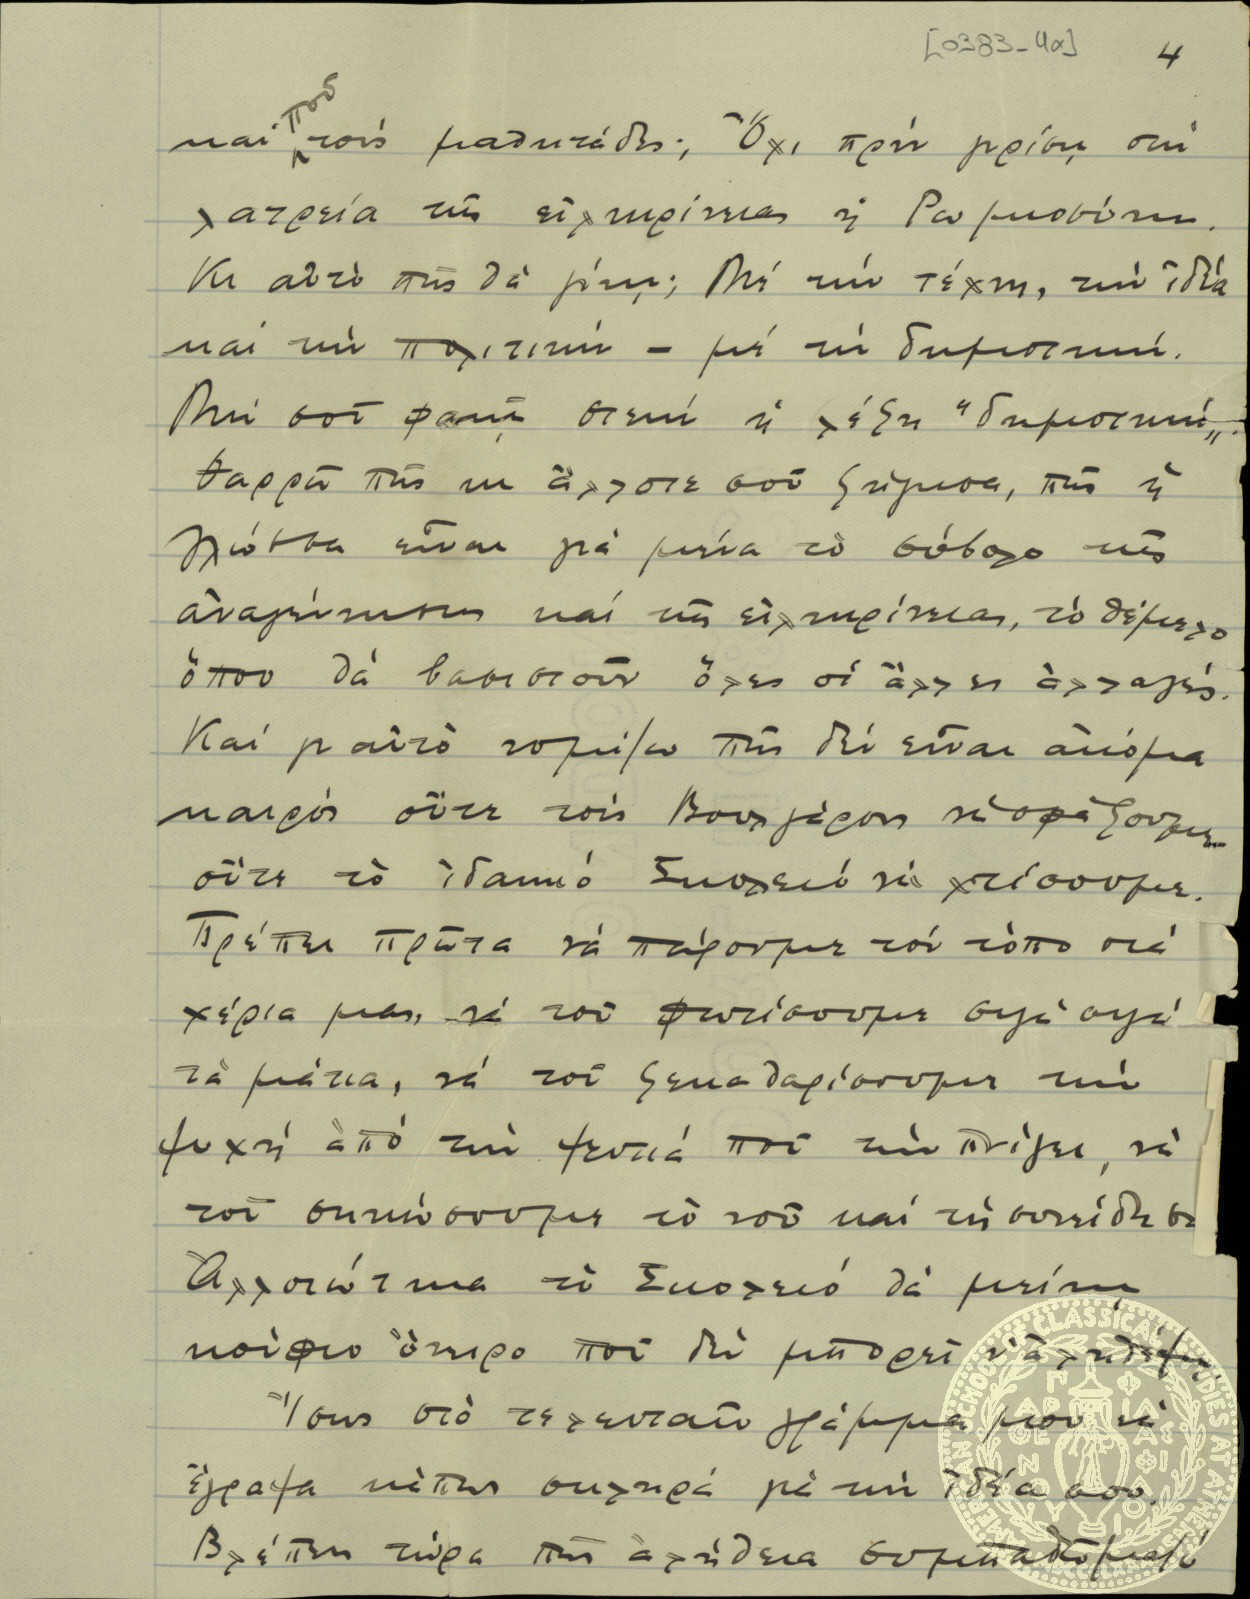 [0383-4α] 4
ποῦ
καὶ τοὺς μαθητάδες; Ὄχι πρὶν γυρίσῃ στὴ
λατρεία τῆς εἰλικρίνειας ἡ Ρωμιοσύνη.
Κι αὐτὸ πῶς θὰ γίνῃ; Μὲ τὴν τέχνη, τὴν ἰδέα
καὶ τὴν πολιτικὴ – μὲ τὴ δημοτική.
Μὴ σοῦ φανῇ στενὴ ἡ λέξη "δημοτική".
Θαρρῶ πῶς κι ἄλλοτε σοῦ ξήγησα, πῶς ἡ
γλώσσα εἶναι γιὰ μένα τὸ σύβολο τῆς
ἀναγέννησης καὶ τῆς εἰλικρίνειας, τὸ θέμελο
ὅπου θὰ βασιστοῦν ὅλες οἱ ἄλλες ἀλλαγές.
Καὶ γι αὐτὸ νομίζω πῶς δὲν εἶναι ἀκόμα
καιρὸς οὔτε τοὺς Βουλγάρους νὰ σφάξουμε
οὔτε τὸ ἰδανικὸ Σκολειὸ νὰ χτίσουμε.
Πρέπει πρῶτα νὰ πάρουμε τὸν τόπο στὰ
χέρια μας, νὰ τοῦ φωτίσουμε σιγὰ σιγὰ
τὰ μάτια, νὰ τοῦ ξεκαθαρίσουμε τὴν
ψυχὴ ἀπὸ τὴν ψευτιὰ ποῦ τὴν πνίγει, νὰ
τοῦ σηκώσουμε τὸ νοῦ καὶ τὴ συνείδηση
Ἀλλοιώτικα τὸ Σκολειὸ θὰ μείνῃ
κούφιο ὄνειρο ποῦ δὲ μπορεῖ ν' ἀληθέψῃ.
Ἴσως στὸ τελευταῖο γράμμα μου νὰ
ἔγραψα κάπως σκληρὰ γιὰ τὴν ἰδέα σου.
Βλέπεις τώρα πῶς ἀλήθεια συμπαθῶ μαζὶ
AMERICAN SCHOOL OF CLASSICAL STUDIES AT ATHENS